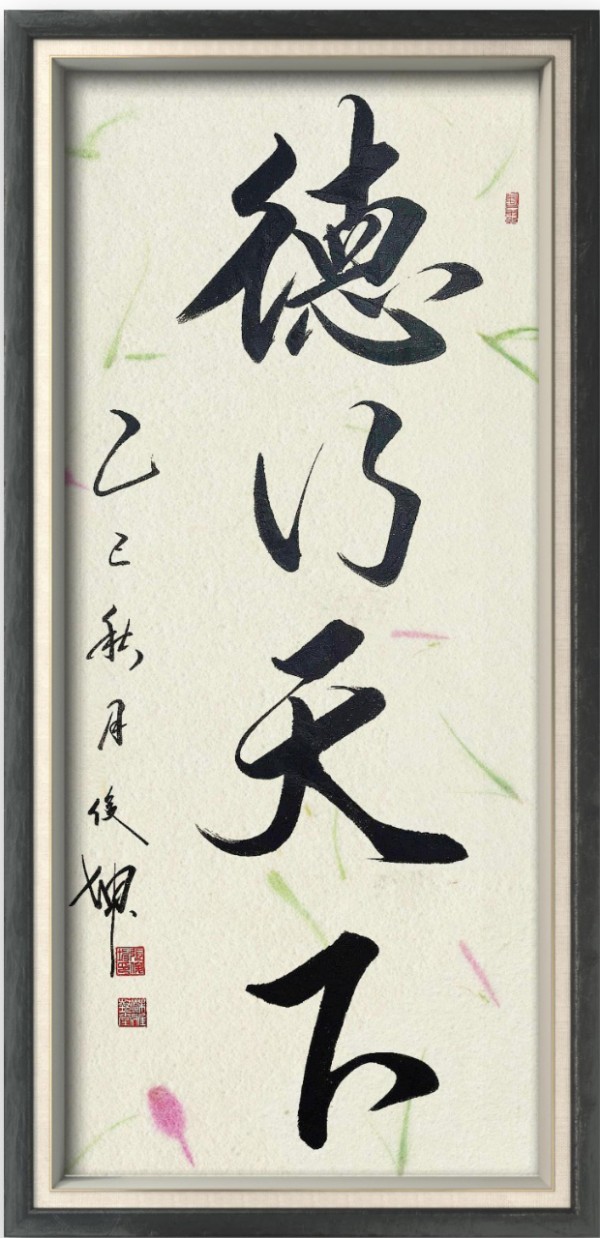 德行天下
乙巳秋月俊坤